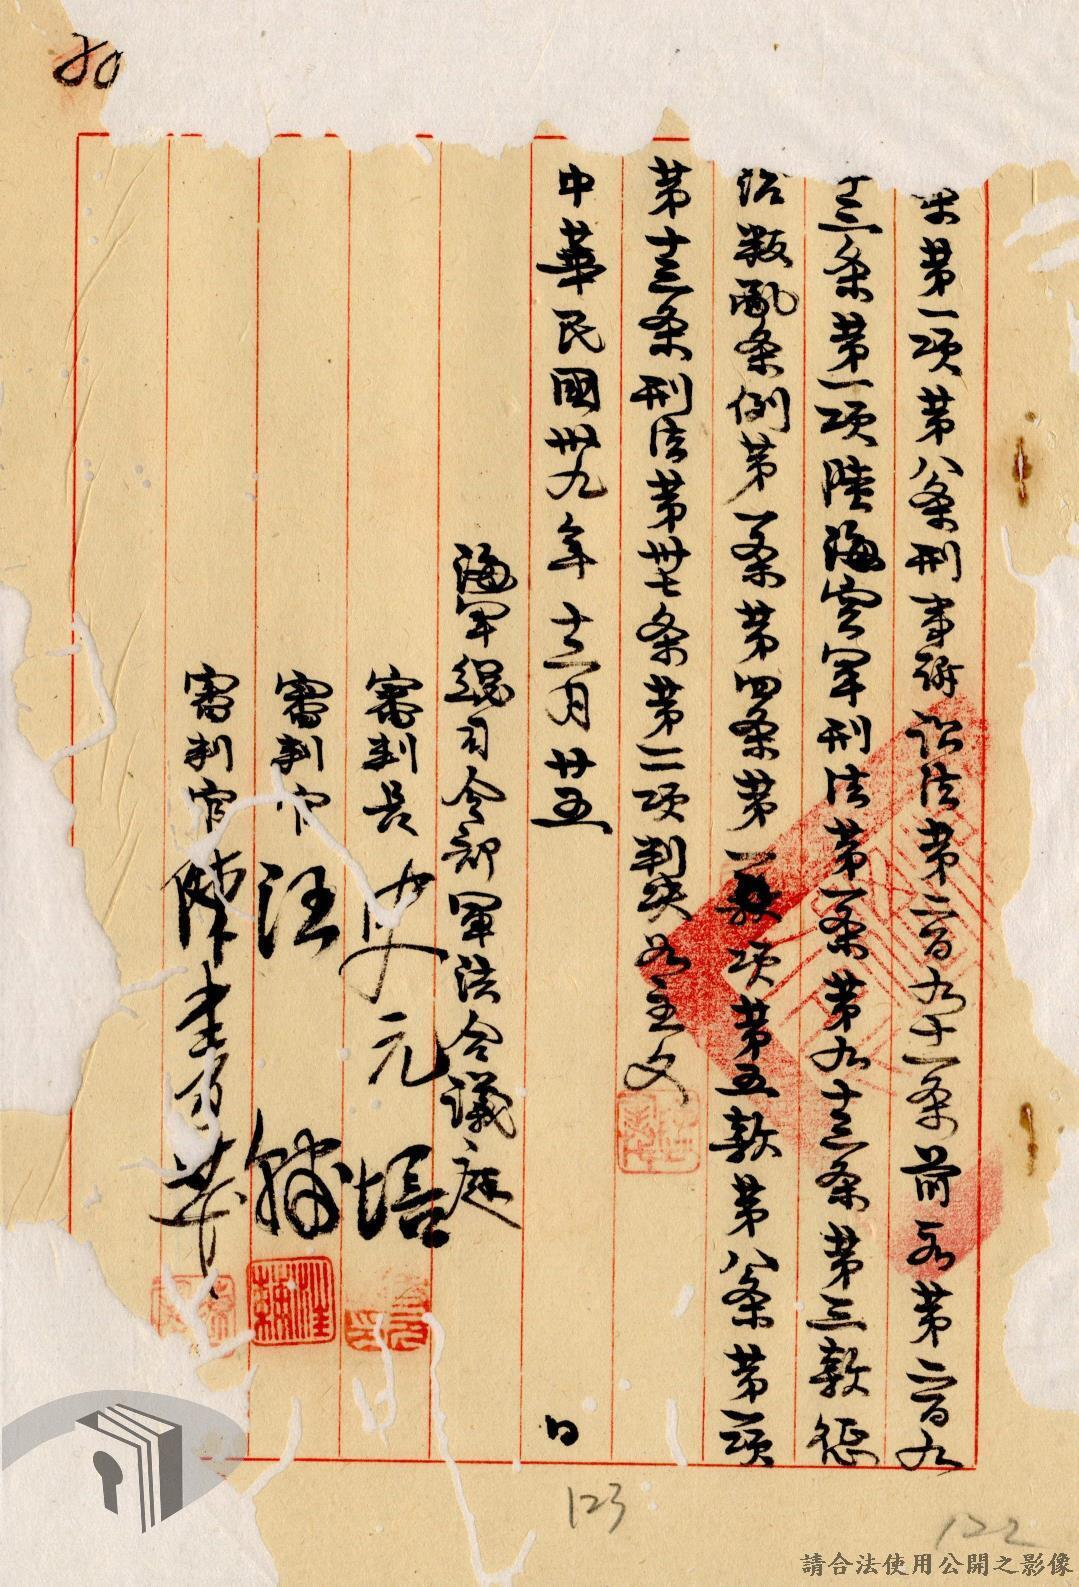 第一項第八条刑事訴訟法第二百九十一条前段第二百九
十三条第一項陸海空軍刑法第一条第九十三条第三款懲
治叛亂条例第一条第四条第一項第五款第八条第一項
第十三条刑法第卅七条第二項判決如主文
中華民國卅九年十二月廿五日
海軍總司令部軍法合議庭
審判長史元培
審判官汪輔
審判官陳書華
80
123
122
請合法使用公開之影像